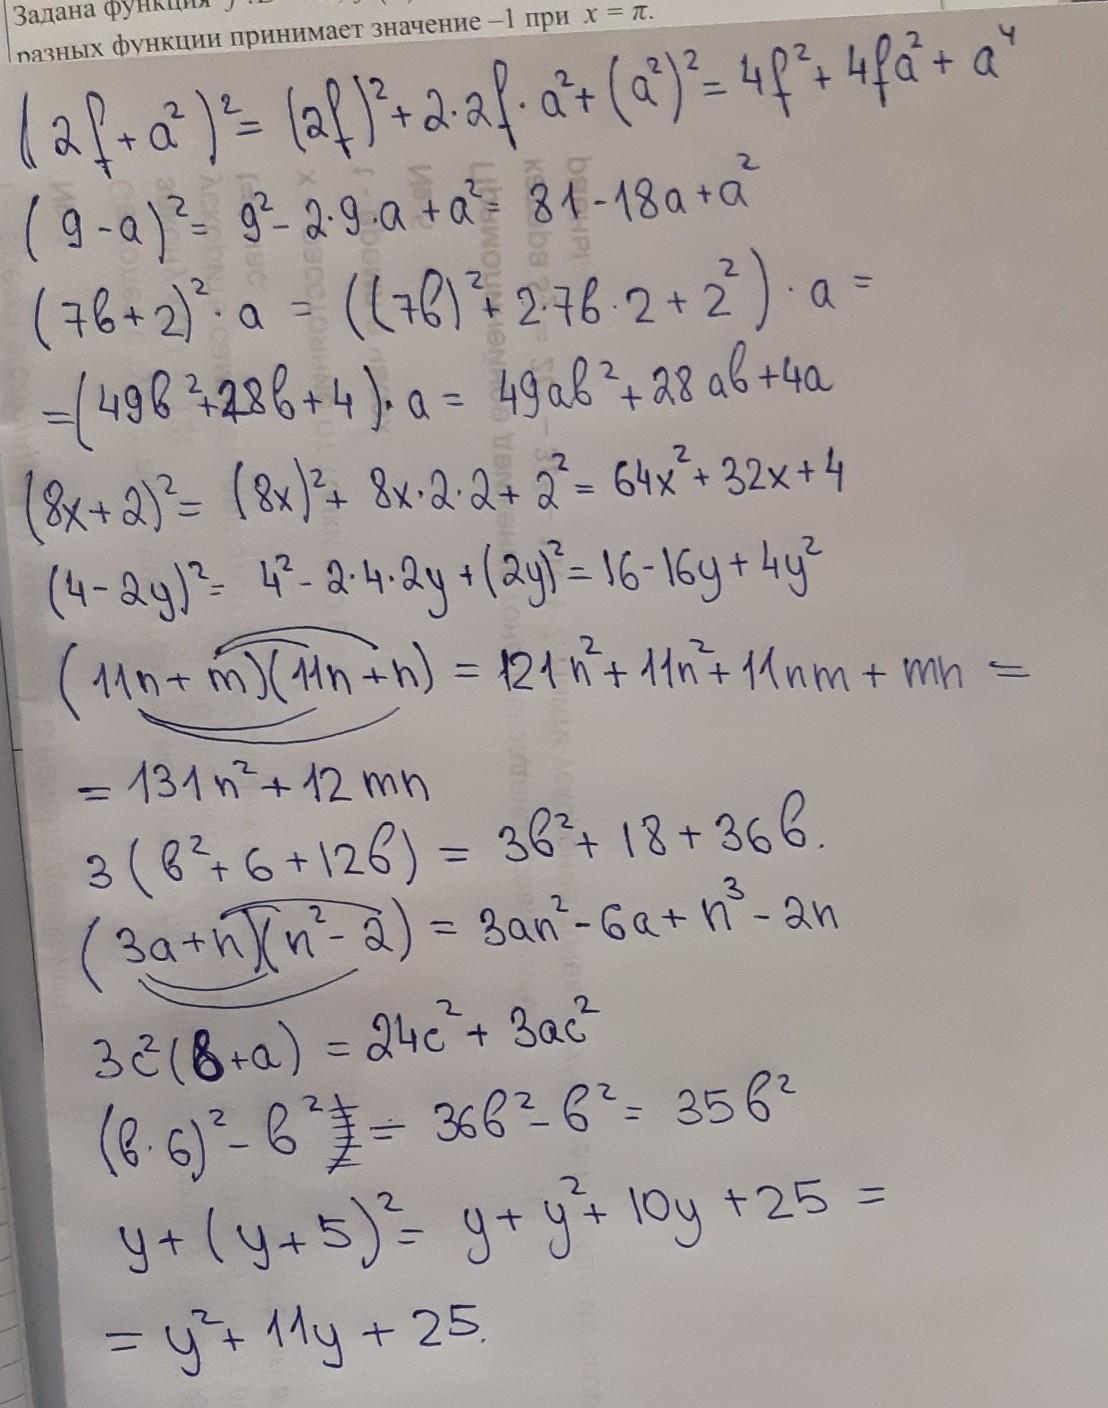 Задана функция
разных функции принимает значение –1 при x = π.
(2f + a²)² = (2f)² + 2·2f·a² + (a²)² = 4f² + 4fa² + a⁴
(9 - a)² = 9² - 2·9·a + a² = 81 - 18a + a²
(7b + 2)²·a = ((7b)² + 2·7b·2 + 2²)·a =
= (49b² + 28b + 4)·a = 49ab² + 28ab + 4a
(8x + 2)² = (8x)² + 8x·2·2 + 2² = 64x² + 32x + 4
(4 - 2y)² = 4² - 2·4·2y + (2y)² = 16 - 16y + 4y²
(11n + m)(11n + n) = 121n² + 11n² + 11nm + mn =
= 131n² + 12mn
3(b² + 6 + 12b) = 3b² + 18 + 36b.
(3a + n)(n² - 2) = 3an² - 6a + n³ - 2n
3c²(8 + a) = 24c² + 3ac²
(b·6)² - b² = 36b² - b² = 35b²
y + (y + 5)² = y + y² + 10y + 25 =
= y² + 11y + 25.